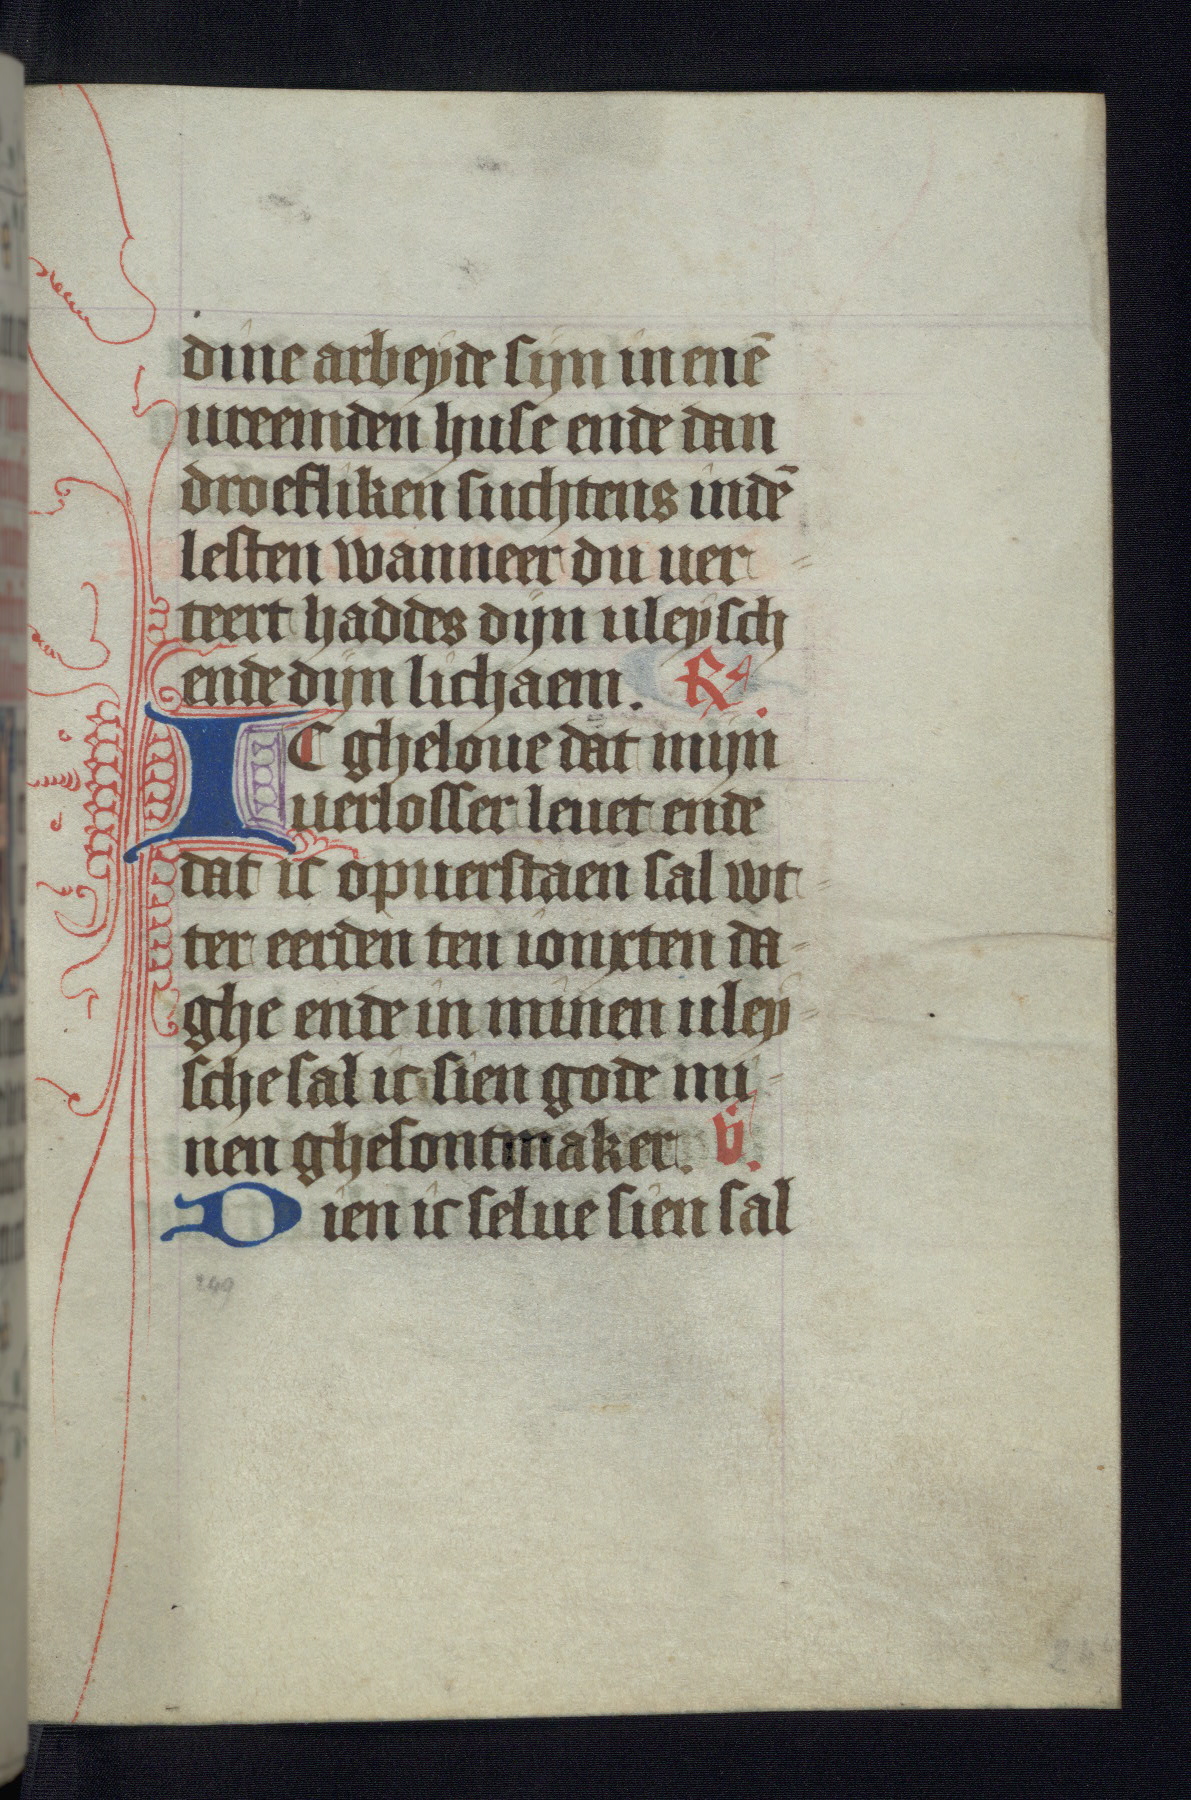 dine arbeyde sijn in enē
ureemden huse ende dan
droefliken suchtens indē
lesten wanneer du uer-
teert haddes dijn uleysch
ende dijn lichaem. R.
IC gheloue dat mijn
uerlosser leuet ende
dat ic opuerstaen sal wt-
ter eerden ten ionxten da-
ghe ende in minen uley-
sche sal ic sien gode mi-
nen ghesontmaker. v.
Dien ic selue sien sal
249